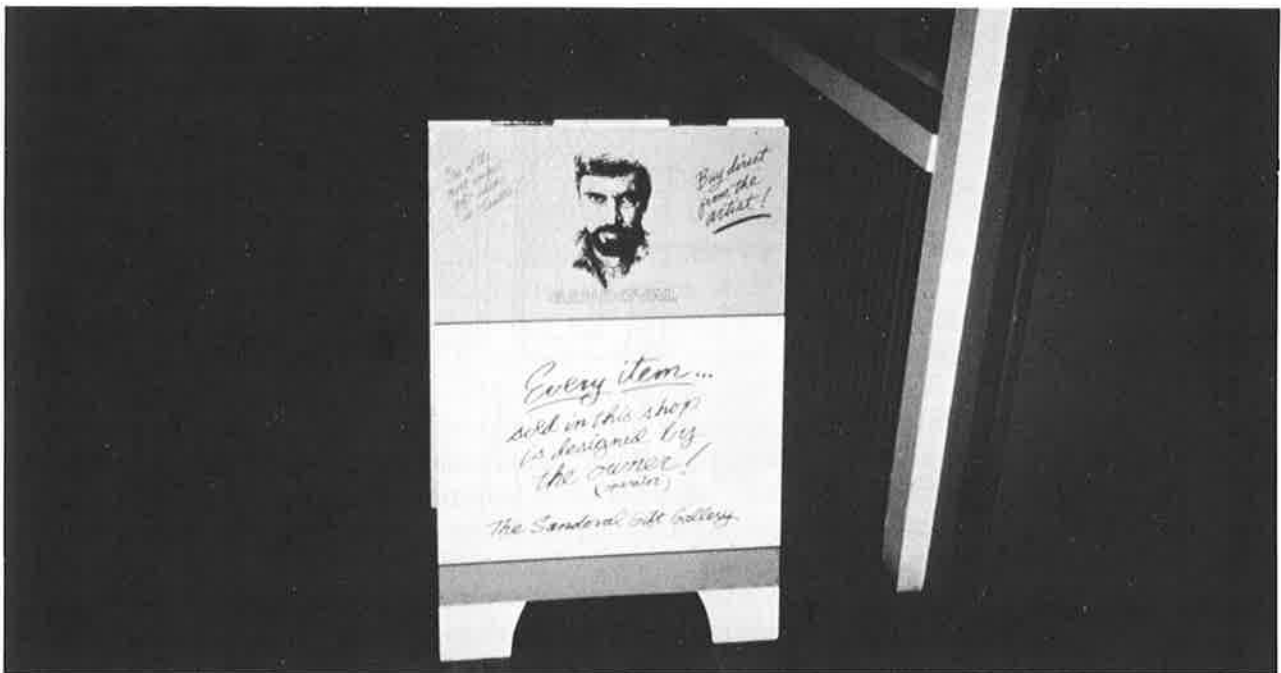 Buy direct
from the
artist!
Every item...
sold in this shop
is designed by
the owner!
(operator)
The Sandoval Gift Gallery